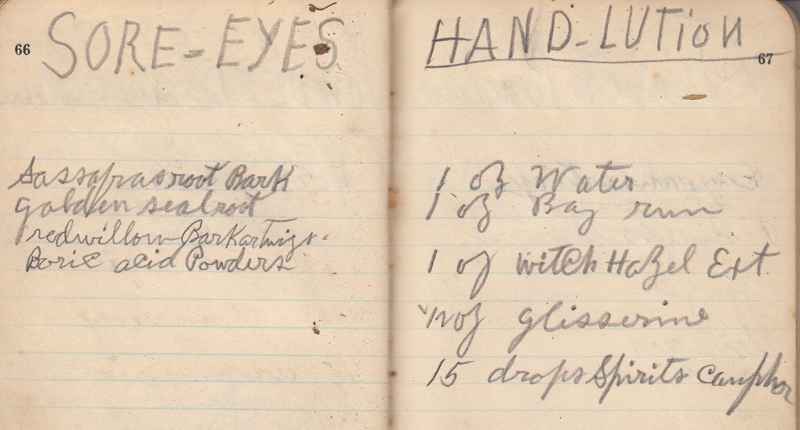 66
SORE-EYES
Sassafrasroot Bark
golden sealroot
redwillow Barkortwigs.
Boric acid Powders
HAND-LUTiON
67
1 oz Water
1 oz Bay rum
1 oz witch Hazel Ext
oz glisserine
15 drops Spirits Camphor